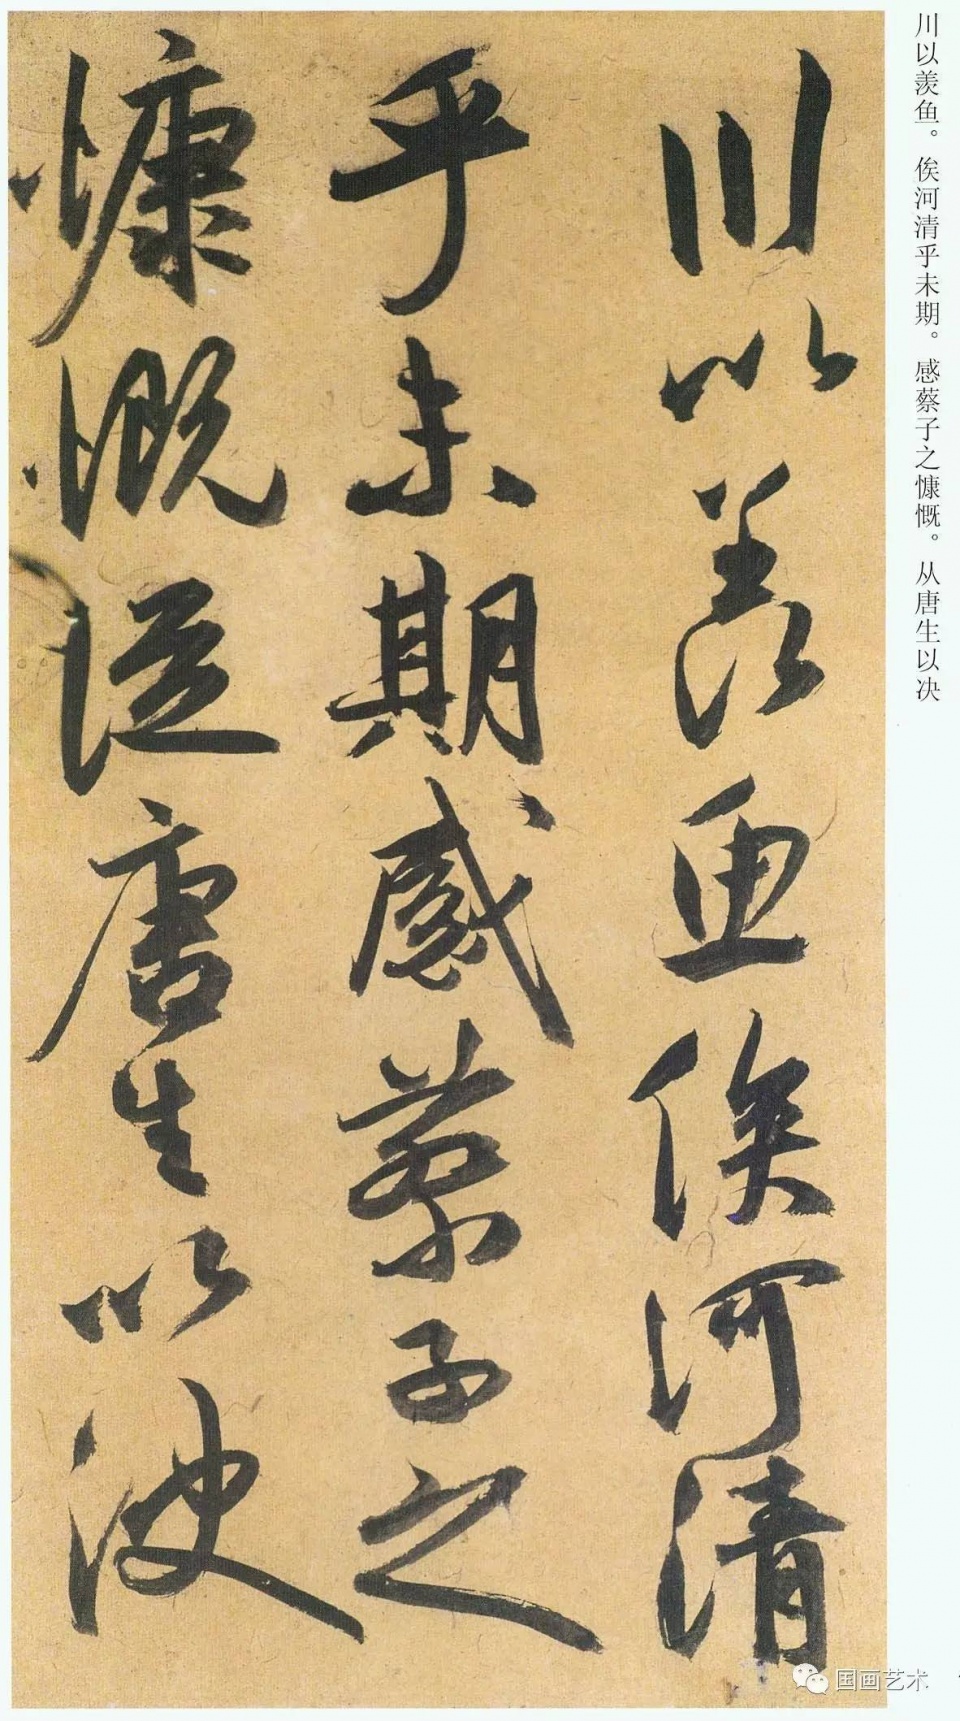 川以羡鱼。俟河清乎未期。感蔡子之慷慨。从唐生以决
川以羨魚俟河清
乎未期感蔡子之
慷慨從唐生以決
国画艺术